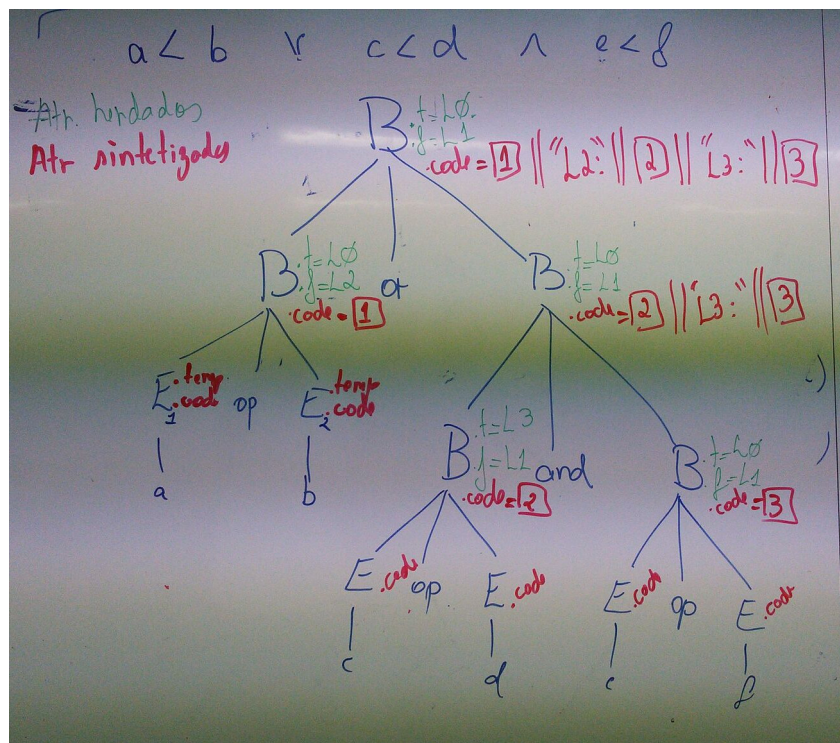 a < b ∨ c < d ∧ e < f
Atr. herdados
Atr sintetizados
B .t=LØ
.f=L1
.code = 1 || "L2:" || 2 || "L3:" || 3
1
B .t=LØ
.f=L2
.code = 1
or
B .t=LØ
.f=L1
.code = 2 || "L3:" || 3
E1 .temp
.code
op
E2 .temp
.code
a
b
B .t=L3
.f=L1
.code = 2
and
B .t=LØ
.f=L1
.code = 3
E .code op E .code
E .code op E .code
c
d
e
f